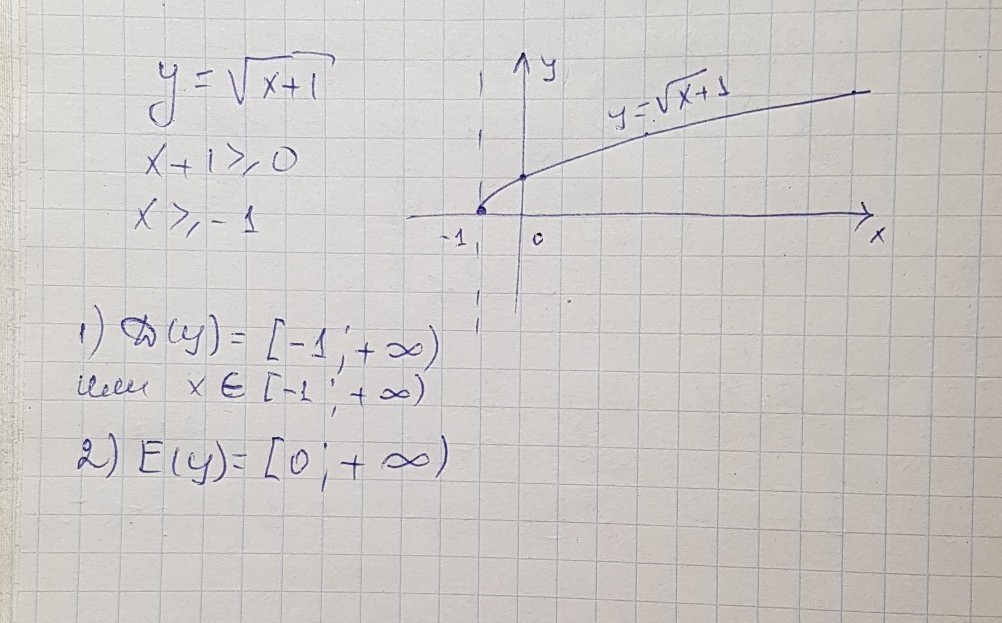 y = √x+1
x + 1 ⩾ 0
x ⩾ -1
y
y = √x+1
-1
0
x
1) D(y) = [-1; +∞)
или x ∈ [-1; +∞)
2) E(y) = [0; +∞)